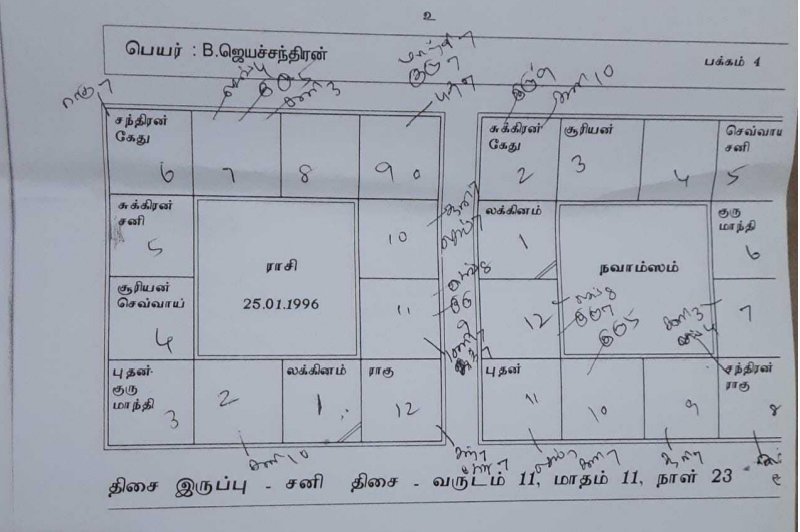 உ
பெயர் : B.ஜெயச்சந்திரன்
பக்கம் 4
ராகு 7
செவ் 4
குரு 5
சனி 3
குரு 7
குரு 9
சனி 10
சந்திரன்
கேது
6
7
8
9
சுக்கிரன்
சனி
5
10
சூரியன்
செவ்வாய்
4
11
புதன்
குரு
மாந்தி
3
2
லக்கினம்
1
ராகு
12
ராசி
25.01.1996
சனி 10
செவ் 8
குரு
சுக்கிரன்
கேது
2
சூரியன்
3
4
செவ்வாய்
சனி
5
லக்கினம்
1
குரு
மாந்தி
6
12
7
புதன்
11
10
9
சந்திரன்
ராகு
8
நவாம்ஸம்
செவ் 8
குரு 7
குரு 5
சனி 3
செவ் 4
செவ் 7
சனி 7
திசை இருப்பு - சனி திசை - வருடம் 11, மாதம் 11, நாள் 23